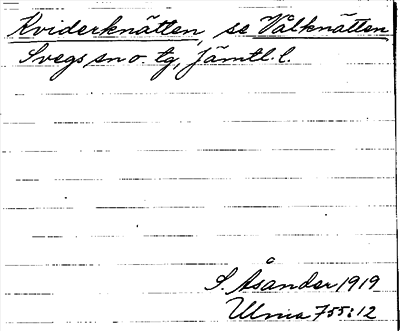 Kviderknätten, se Vålknätten
Svegs sn o. tg, Jämtl. l.
S. Åsander 1919
Ulma 755:12